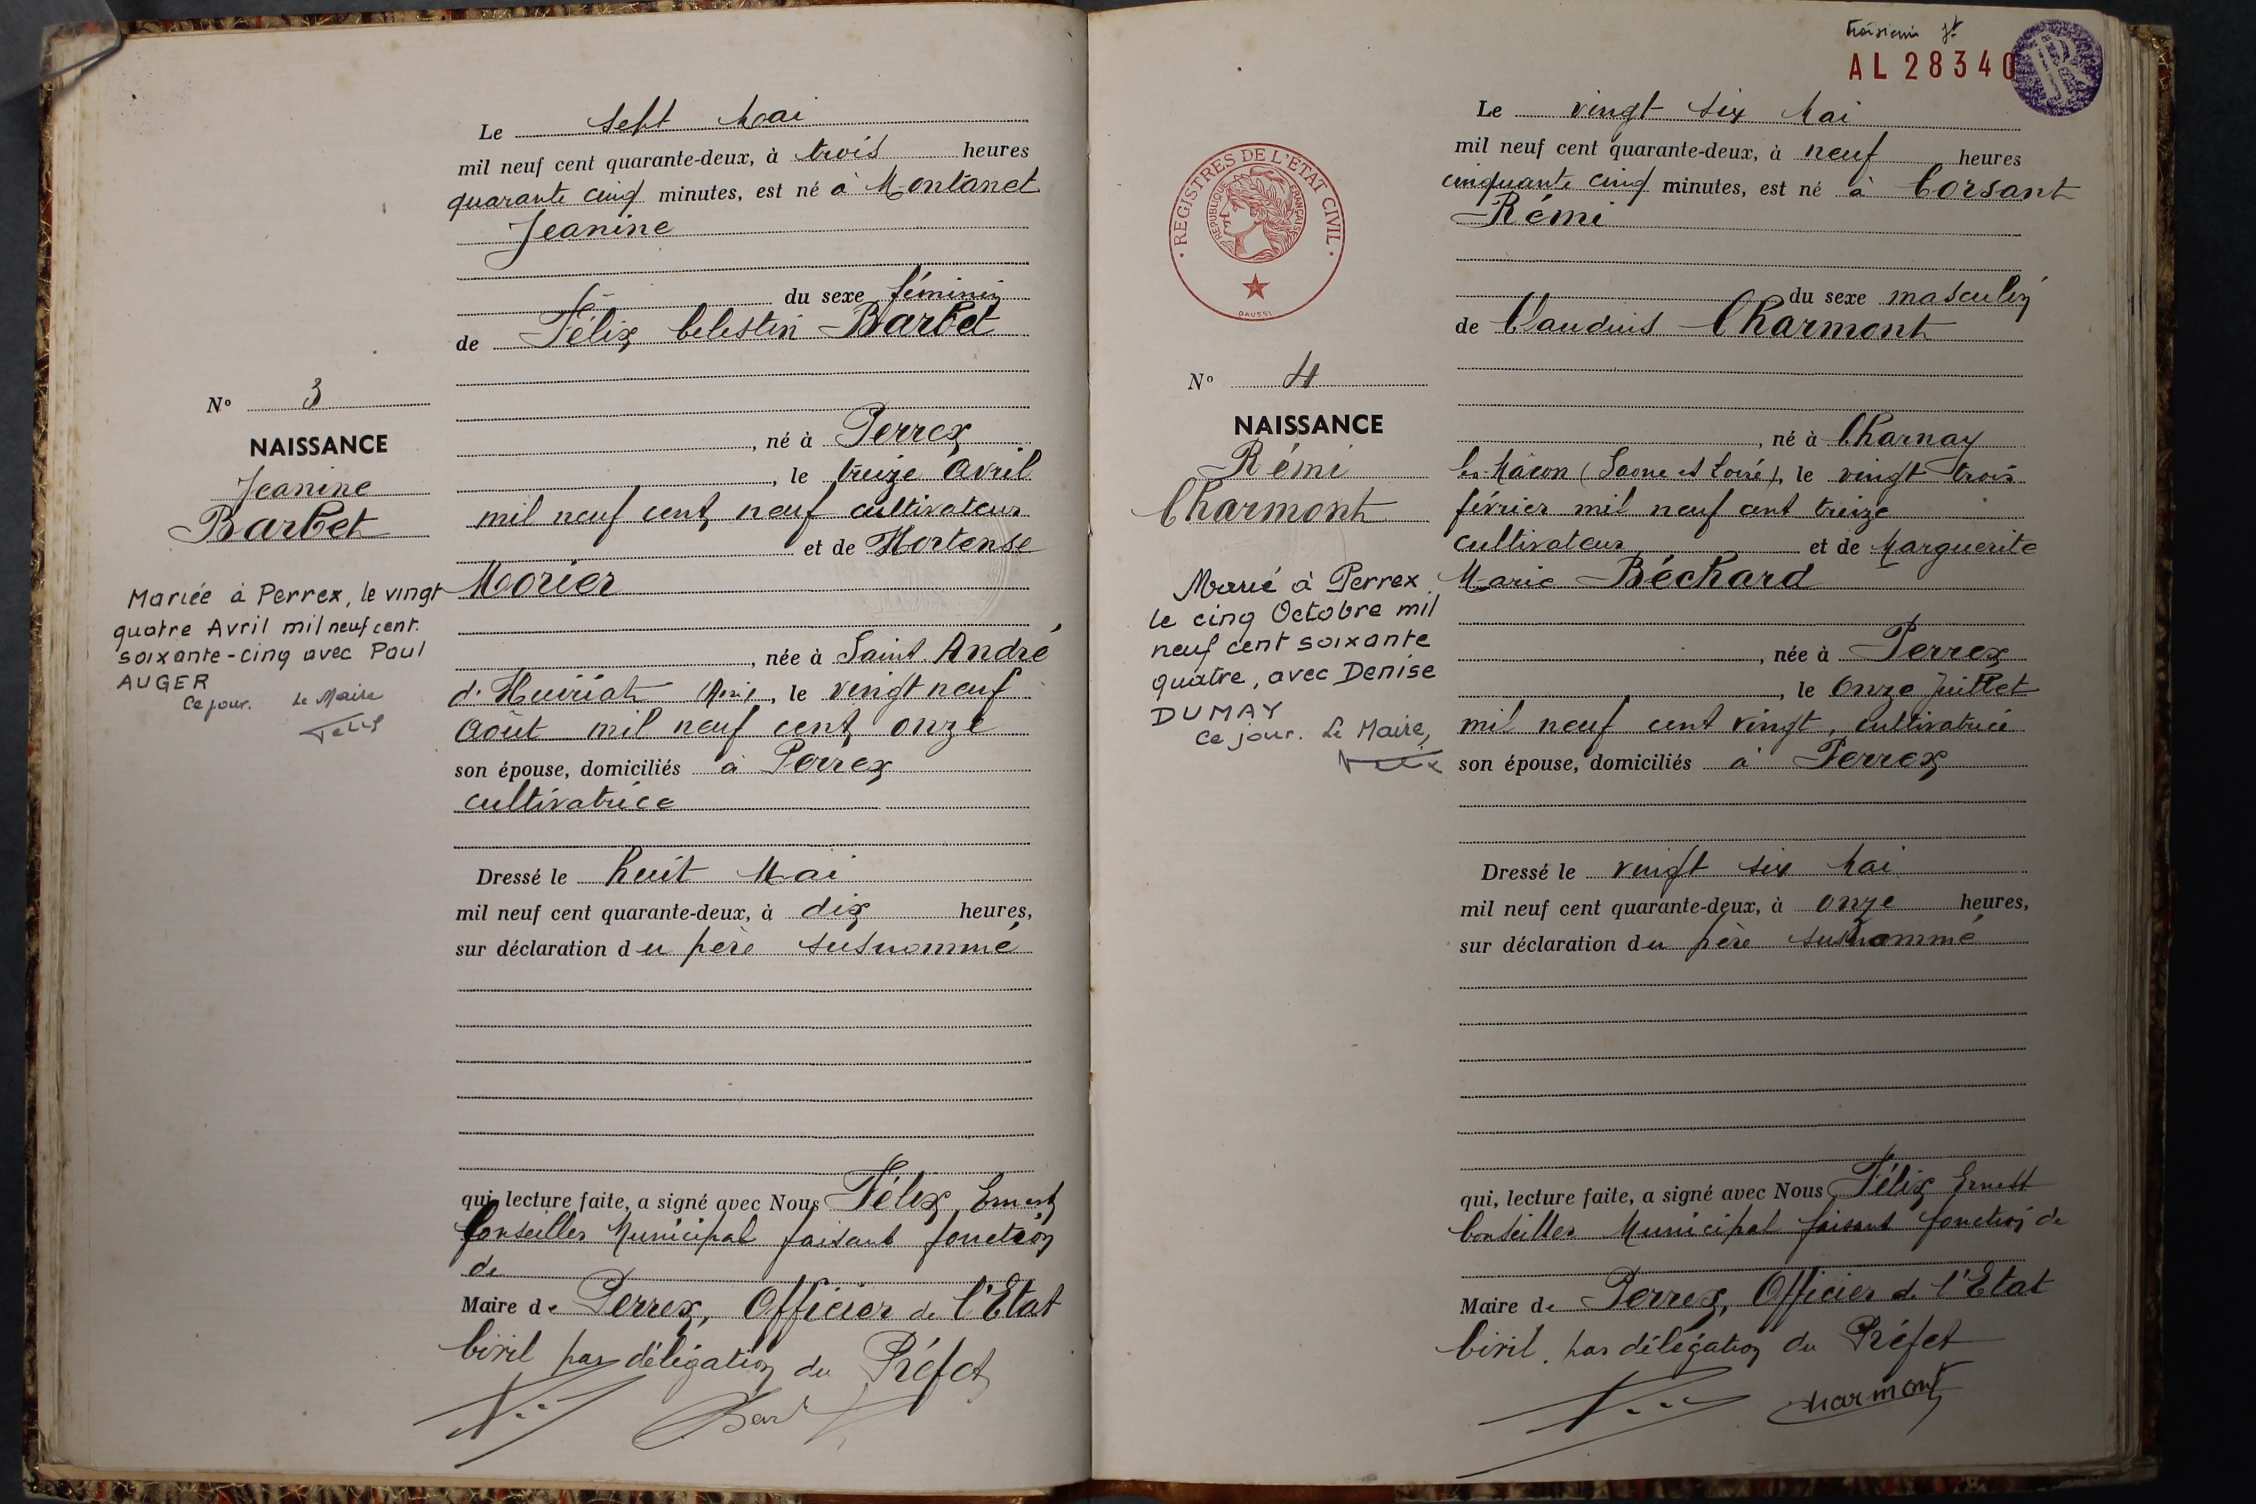 Le sept Mai
mil neuf cent quarante-deux, à trois heures
quarante cinq minutes, est né à Montanet
Jeanine
du sexe féminin
de Félix Célestin Barbet
N° 3
NAISSANCE
Jeanine
Barbet
, né à Perrex
, le treize Avril
mil neuf cent neuf cultivateur
et de Hortense
Morier
Mariée à Perrex, le vingt
quatre Avril mil neuf cent.
soixante-cinq avec Paul
AUGER
Ce jour. Le Maire
, née à Saint André
d'Huiriat (Ain), le vingt neuf
Août mil neuf cent onze
son épouse, domiciliés à Perrex
cultivatrice
Dressé le huit Mai
mil neuf cent quarante-deux, à dix heures,
sur déclaration du père susnommé
qui, lecture faite, a signé avec Nous Félix Ernest
Conseiller Municipal faisant fonction
de
Maire de Perrex, Officier de l'Etat
Civil par délégation du Préfet
AL 28340
REGISTRES DE L'ETAT CIVIL
REPUBLIQUE FRANÇAISE
DAUSSI
Le vingt six Mai
mil neuf cent quarante-deux, à neuf heures
cinquante cinq minutes, est né à Corsant
Rémi
du sexe masculin
de Claudius Charmont
N° 4
NAISSANCE
Rémi
Charmont
, né à Charnay
les-Mâcon (Saone et Loire), le vingt trois
février mil neuf cent treize
cultivateur et de Marguerite
Marie Béchard
Marié à Perrex
le cinq Octobre mil
neuf cent soixante
quatre, avec Denise
DUMAY
Ce jour. Le Maire,
, née à Perrex
, le Onze Juillet
mil neuf cent vingt, cultivatrice
son épouse, domiciliés à Perrex
Dressé le vingt six Mai
mil neuf cent quarante-deux, à onze heures,
sur déclaration du père susnommé
qui, lecture faite, a signé avec Nous Félix Ernest
Conseiller Municipal faisant fonction de
Maire de Perrex, Officier de l'Etat
Civil. par délégation du Préfet
charmont